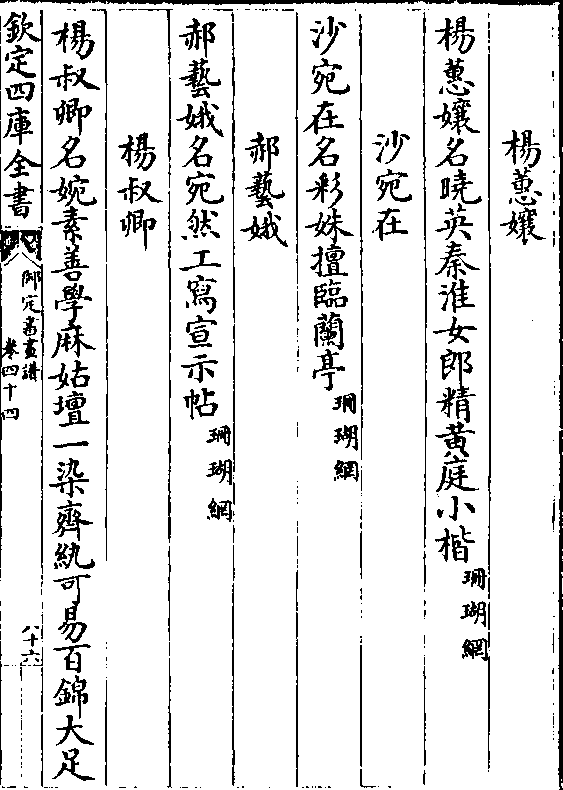 楊蕙孃
楊蕙孃名曉英秦淮女郎精黃庭小楷珊瑚網
沙宛在
沙宛在名彩姝擅臨蘭亭珊瑚網
郝藝娥
郝藝娥名宛然工寫宣示帖珊瑚網
楊叔卿
楊叔卿名婉素善學麻姑壇一染齊紈可易百錦大足
欽定四庫全書
御定書畫譜
卷四十四
八十六